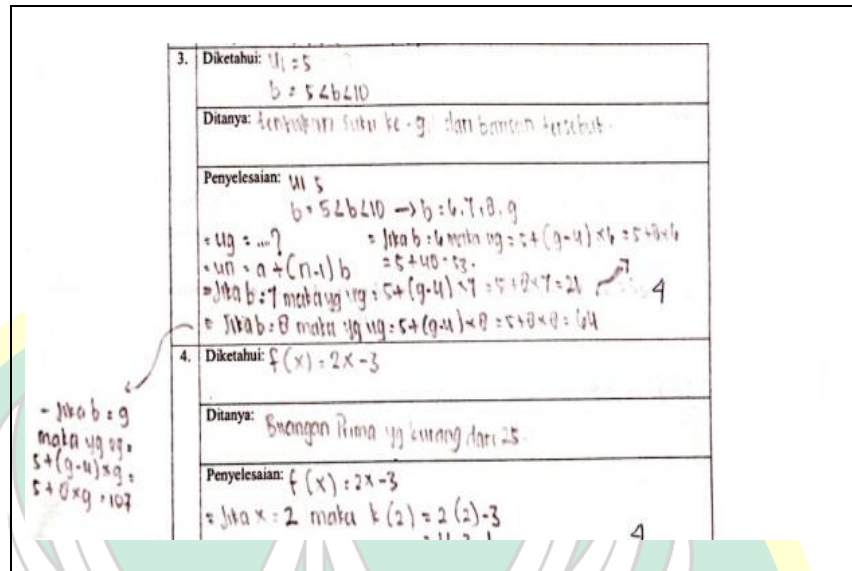 3. Diketahui: U1 = 5
b = 5<b<10
Ditanya: tentukan suku ke-9 dari barisan tersebut.
Penyelesaian: U1 5
b = 5<b<10 → b = 6, 7, 8, 9
= U9 = ....? = Jika b = 6 maka U9 = 5+(9-4)×6 = 5+8×6
= Un = a + (n-1) b = 5+48 = 53.
= Jika b = 7 maka yg U9 = 5+(9-4)×7 = 5+8×7 = 21 4
= Jika b = 8 maka yg U9 = 5+(9-4)×8 = 5+8×8 = 64
- Jika b = 9
maka yg U9 =
5+(9-4)×9 =
5+8×9 = 107
4. Diketahui: f(x) = 2x-3
Ditanya: Bilangan Prima yg kurang dari 25.
Penyelesaian: f(x) = 2x-3
= Jika x = 2 maka k(2) = 2(2)-3
4